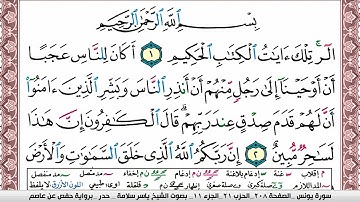 بِسْمِ اللَّهِ الرَّحْمَٰنِ الرَّحِيمِ
الٓر ۚ تِلْكَ ءَايَٰتُ ٱلْكِتَٰبِ ٱلْحَكِيمِ ١ أَكَانَ لِلنَّاسِ عَجَبًا
أَنْ أَوْحَيْنَآ إِلَىٰ رَجُلٍ مِّنْهُمْ أَنْ أَنذِرِ ٱلنَّاسَ وَبَشِّرِ ٱلَّذِينَ ءَامَنُوٓا۟
أَنَّ لَهُمْ قَدَمَ صِدْقٍ عِندَ رَبِّهِمْ ۗ قَالَ ٱلْكَٰفِرُونَ إِنَّ هَٰذَا
لَسَٰحِرٌ مُّبِينٌ ٢ إِنَّ رَبَّكُمُ ٱللَّهُ ٱلَّذِى خَلَقَ ٱلسَّمَٰوَٰتِ وَٱلْأَرْضَ
سورة يونس الصفحة ٢٠٨ الجزء ١١ بصوت الشيخ ياسر سلامة حدر برواية حفص عن عاصم